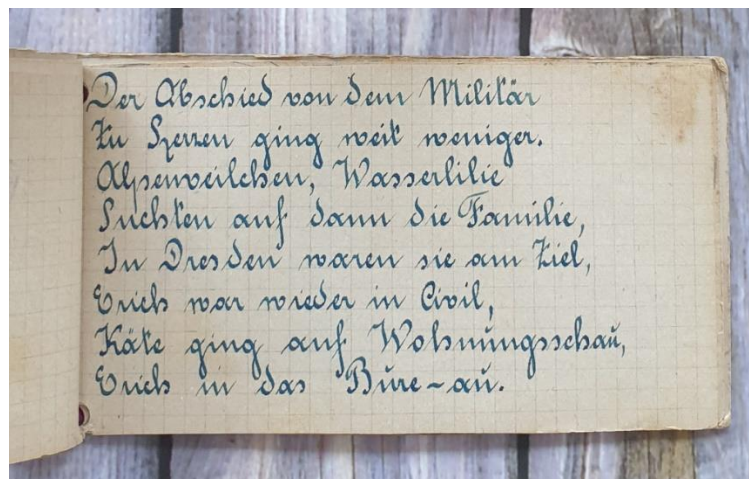 Der Abschied von dem Militär
Zu Herzen ging weit weniger.
Alpenveilchen, Wasserlilie
Suchten auf dann die Familie,
In Dresden waren sie am Ziel,
Erich war wieder in Civil,
Käte ging auf Wohnungsschau,
Erich in das Büre-au.